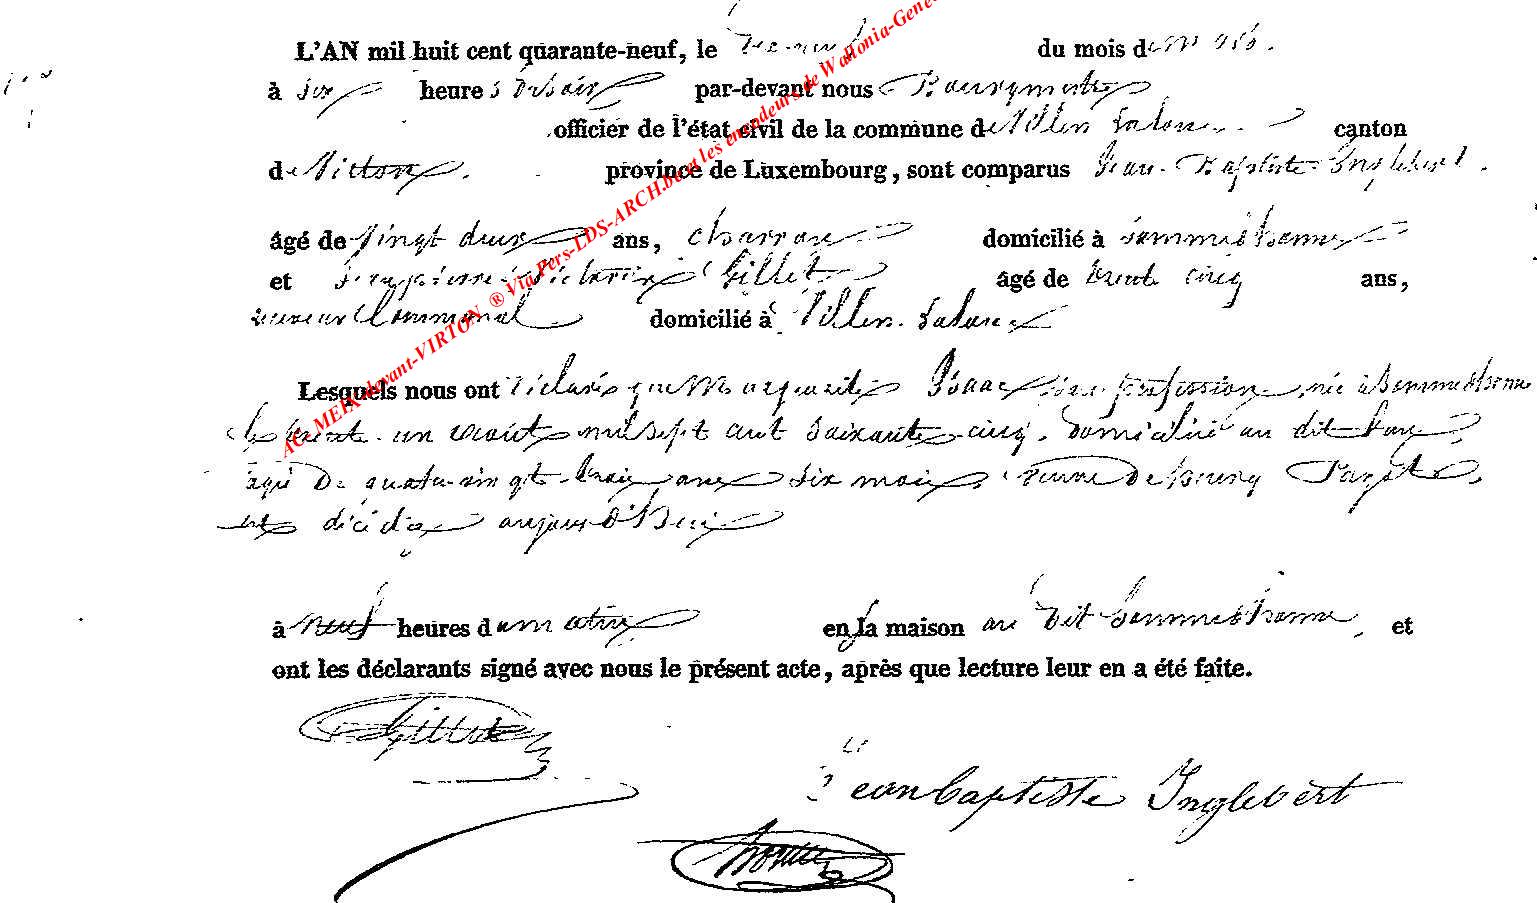 L'AN mil huit cent quarante-neuf, le du mois de
à six heures du soir par-devant nous Bourgmestre
officier de l'état civil de la commune de Villers Laloue canton
de Virton. province de Luxembourg, sont comparus Jean-Baptiste Inglebert.
âgé de Vingt deux ans, charron domicilié à Sommethonne
et Gillet âgé de trente cinq ans,
receveur Communal domicilié à Villers-Laloue
Lesquels nous ont déclaré que Marguerite Isaac sans profession, née à Sommethonne
le trente-un août mil sept cent soixante-cinq, domiciliée au dit lieu,
âgée de quatre-vingt-trois ans six mois, veuve de
est décédée aujourd'hui
à neuf heures du matin en la maison au dit Sommethonne, et
ont les déclarants signé avec nous le présent acte, après que lecture leur en a été faite.
Gillet
Jean Baptiste Inglebert
AG- MEIX-devant-VIRTON ® Via Pers-LDS-ARCH.be et les encodeurs de Wallonia-Gene